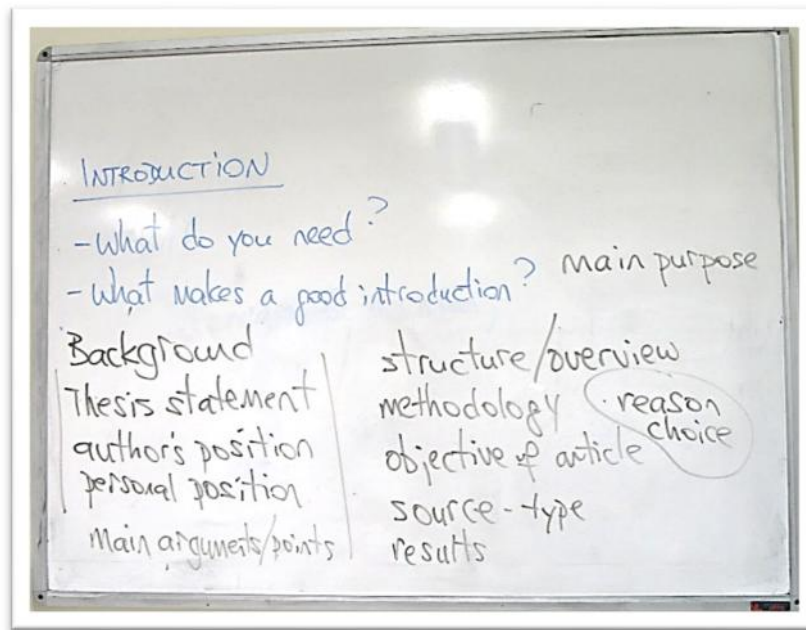 INTRODUCTION
- What do you need?
- What makes a good introduction?
main purpose
Background
Thesis statement
author's position
personal position
main arguments/points
structure/overview
methodology
objective of article
source-type
results
reason
choice